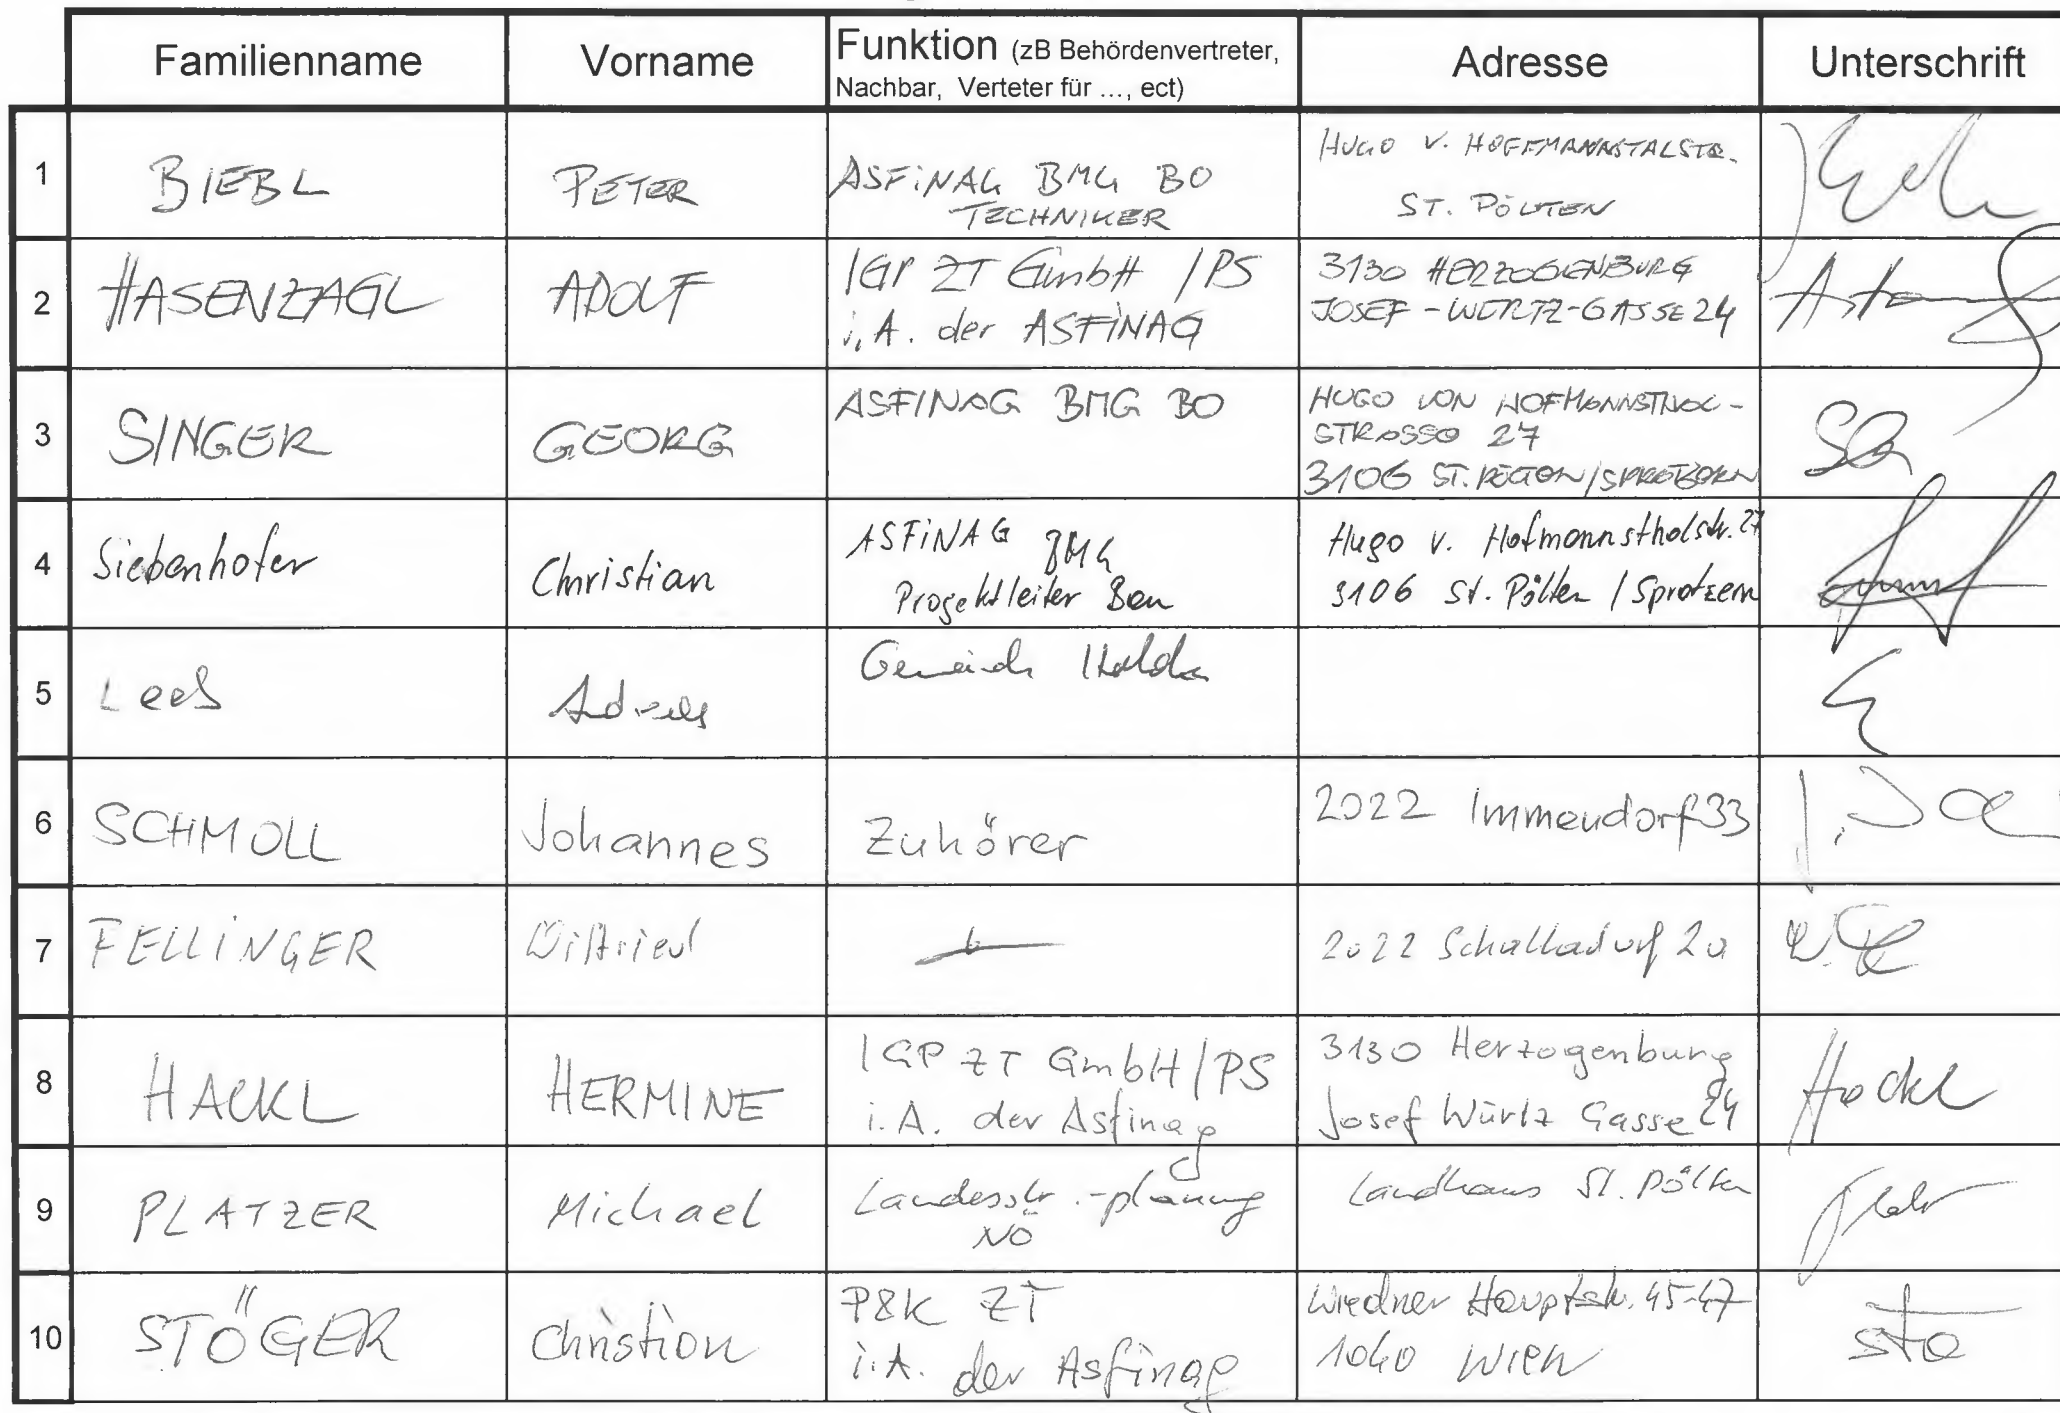 Familienname Vorname Funktion (zB Behördenvertreter, Nachbar, Verteter für ..., ect) Adresse Unterschrift
1 BIEBL PETER ASFiNAG BMG BO TECHNIKER HUGO V. HOFFMANNSTALSTR. ST. PÖLTEN
2 HASENZAGL ADOLF IGP ZT GmbH /PS i.A. der ASFiNAG 3130 HERZOGENBURG JOSEF-WÜRTZ-GASSE 24
3 SINGER GEORG ASFINAG BMG BO HUGO VON HOFMANNSTHAL-STRASSE 27 3106 ST. PÖLTEN/SPRATZERN
4 Siebenhofer Christian ASFiNAG BMG Projektleiter Bau Hugo v. Hofmannsthalstr. 27 3106 St. Pölten / Spratzern
5 Andreas Gemeinde
6 SCHMOLL Johannes Zuhörer 2022 Immendorf 33
7 FELLiNGER Wilfried 2022 Schalladorf 20
8 HACKL HERMINE IGP ZT GmbH/PS i.A. der Asfinag 3130 Herzogenburg Josef Würtz Gasse 24 Hackl
9 PLATZER Michael Landesstr.-planung NÖ Landhaus St. Pölten
10 STÖGER Christian P&K ZT i.A. der Asfinag Wiedner Hauptstr. 45-47 1040 WIEN Stö